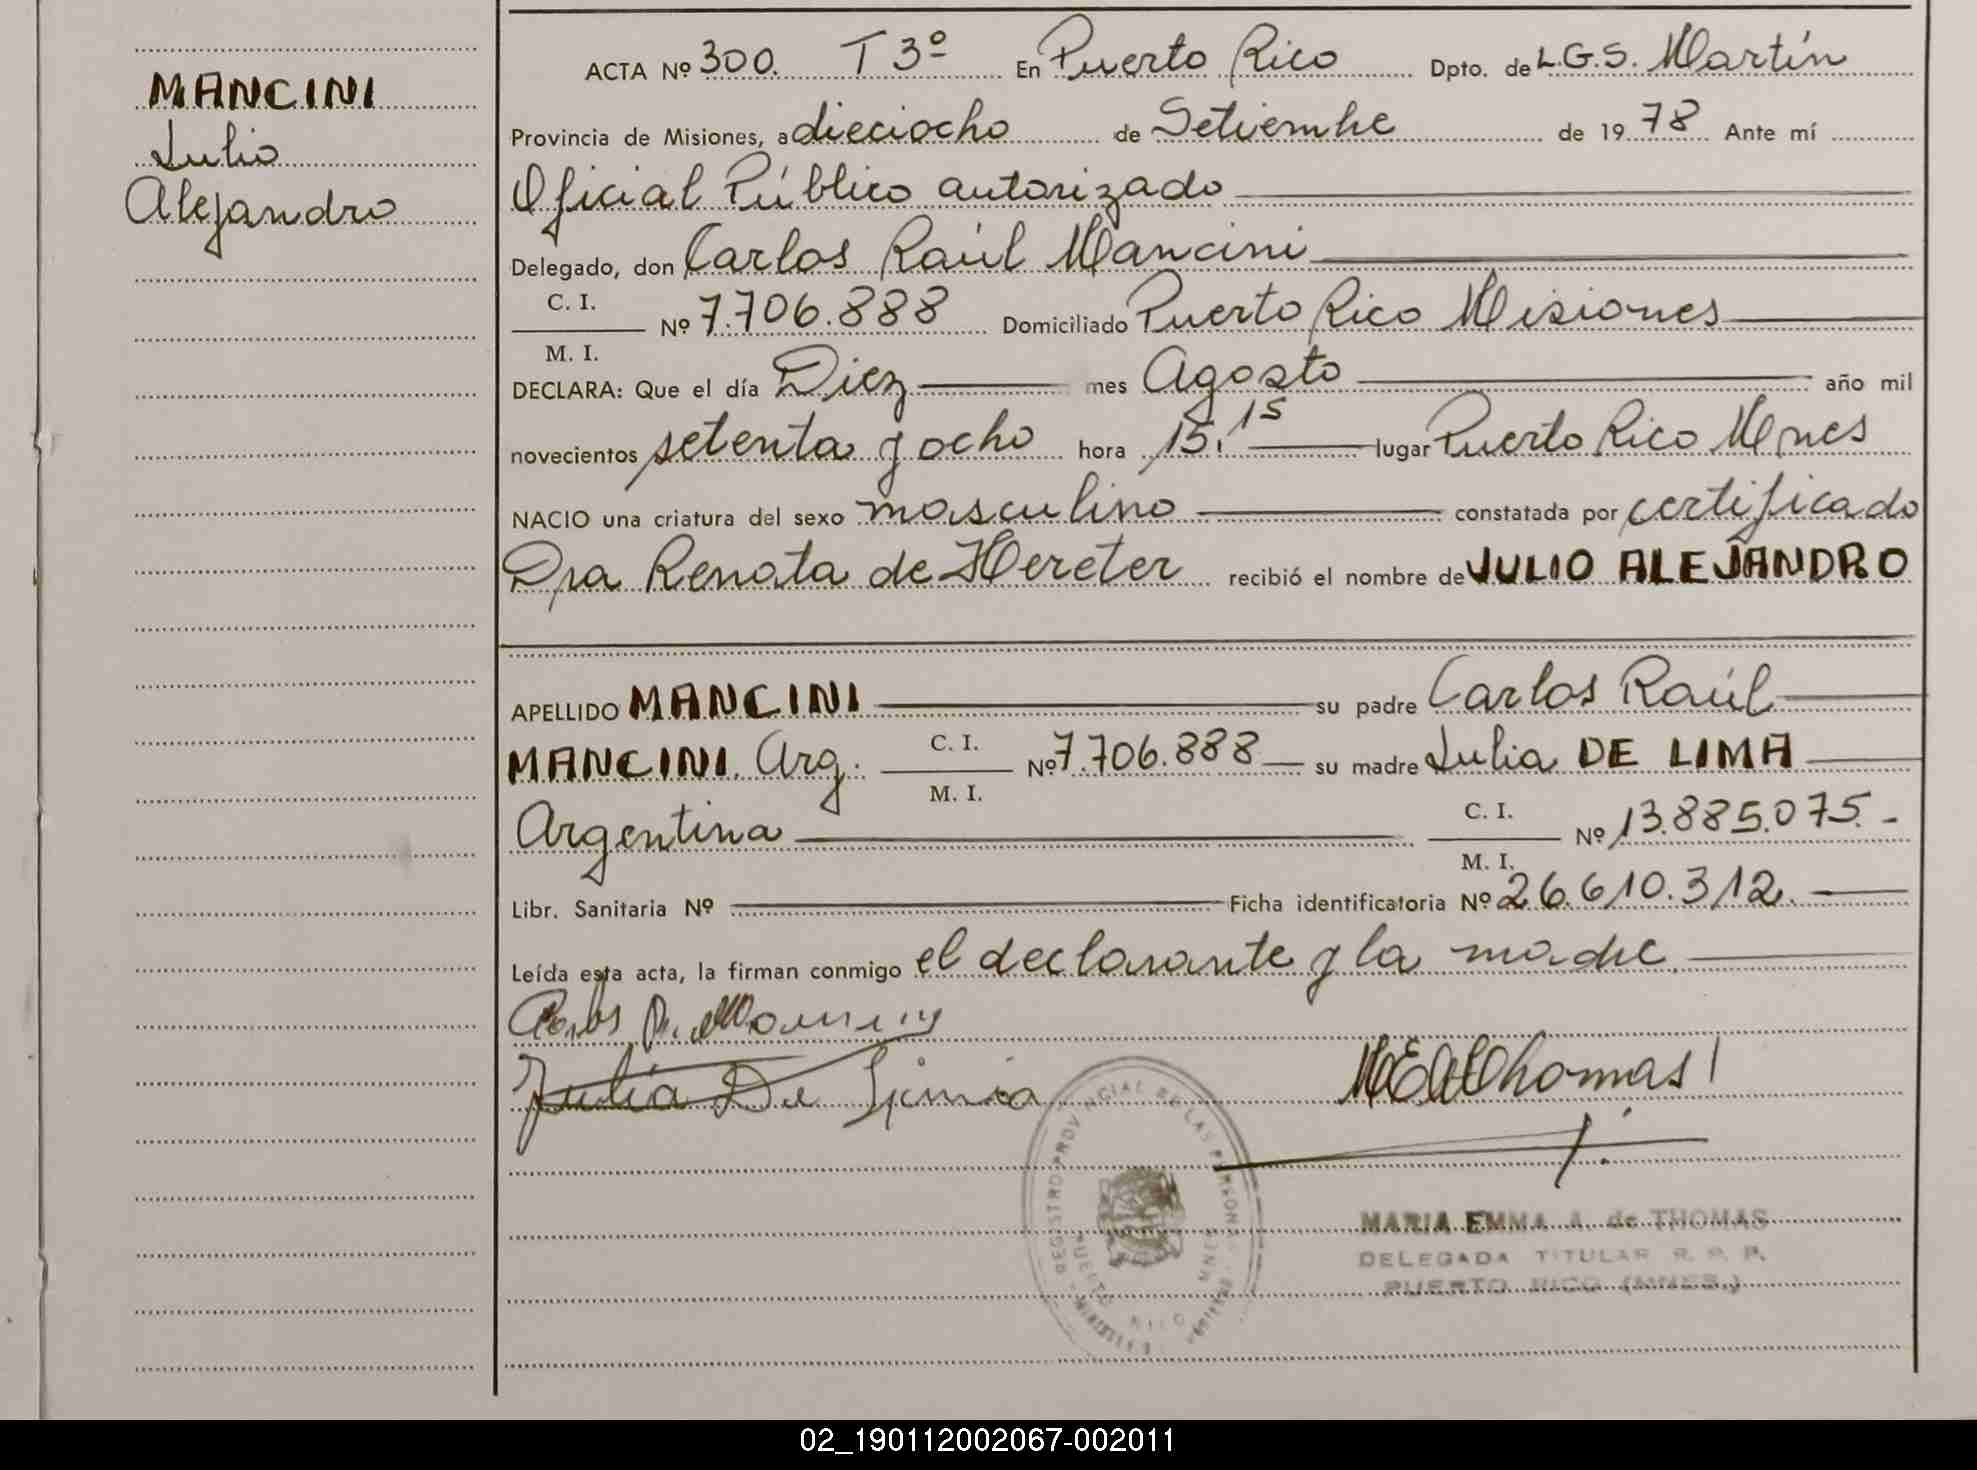 MANCINI
Julio
Alejandro
ACTA Nº 300. T 3º En Puerto Rico Dpto. de L.G.S. Martín
Provincia de Misiones, a dieciocho de Setiembre de 1978 Ante mí
Oficial Público autorizado
Delegado, don Carlos Raúl Mancini
C. I.
Nº 7.706.888 Domiciliado Puerto Rico Misiones
M. I.
DECLARA: Que el día Diez mes Agosto año mil
novecientos setenta y ocho hora 15.15 lugar Puerto Rico Mnes
NACIO una criatura del sexo masculino constatada por certificado
Dra Renata de Hereter recibió el nombre de JULIO ALEJANDRO
APELLIDO MANCINI su padre Carlos Raúl
MANCINI. Arg. C. I. Nº 7.706.888 su madre Julia DE LIMA
M. I.
Argentina C. I. Nº 13.885.075.-
M. I.
Libr. Sanitaria Nº Ficha identificatoria Nº 26.610.312.
Leída esta acta, la firman conmigo el declarante y la madre.
Carlos R. Mancini
Julia De Lima
MEAThomas
REGISTRO PROVINCIAL DE LAS PERSONAS
PUERTO RICO MNES
MARIA EMMA A. de THOMAS
DELEGADA TITULAR R. P. P.
PUERTO RICO (MNES.)
02_190112002067-002011